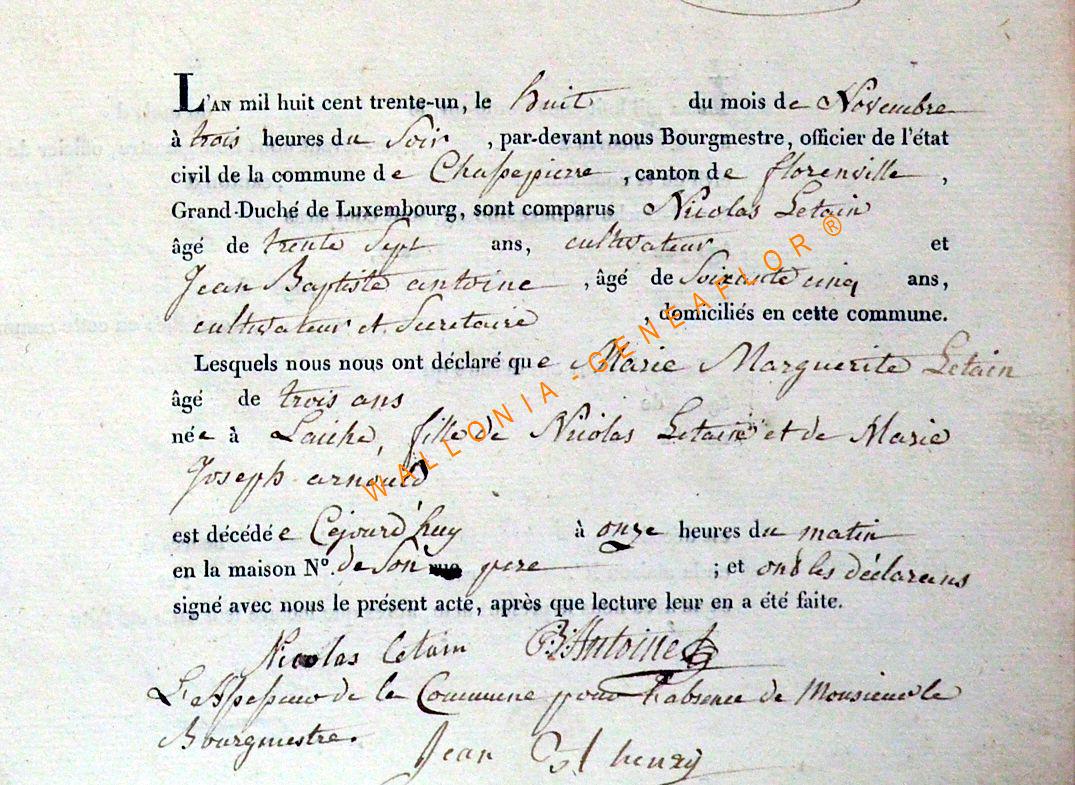 L'AN mil huit cent trente-un, le huit du mois de Novembre
à trois heures du Soir, par-devant nous Bourgmestre, officier de l'état
civil de la commune de Chassepierre, canton de florenville,
Grand-Duché de Luxembourg, sont comparus Nicolas Letain
âgé de trente Sept ans, cultivateur et
Jean Baptiste antoine, âgé de Soixante cinq ans,
cultivateur et Secretaire, domiciliés en cette commune.
Lesquels nous nous ont déclaré que Marie Marguerite Letain
âgé de trois ans
née à Laiche, fille de Nicolas Letain et de Marie
Joseph arnould
est décédée Cejourd'huy à onze heures du matin
en la maison N°. de Son pere ; et ont les déclarans
signé avec nous le présent acte, après que lecture leur en a été faite.
Nicolas Letain JB Antoine
L'Assesseur de la Commune pour l'absence de Monsieur le
Bourgmestre.
Jean henry
WALLONIA - GENEAFLOR ®